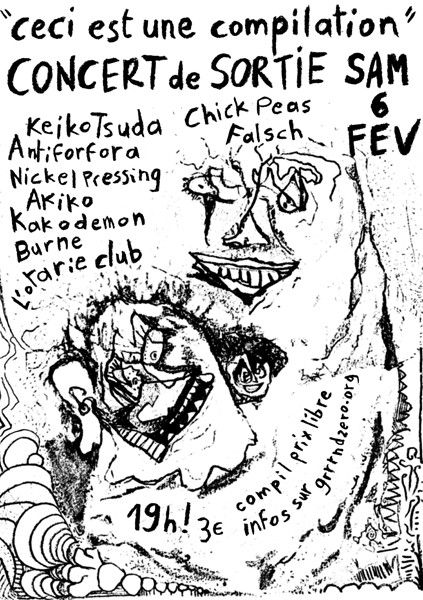 "ceci est une compilation"
CONCERT de SORTIE SAM
6
FEV
Keiko Tsuda
Antiforfora
Nickel Pressing
Akiko
Kakodemon
Burne
L'otarie club
Chick Peas
Falsch
19h! 3€
compil prix libre
infos sur grrrndzero.org